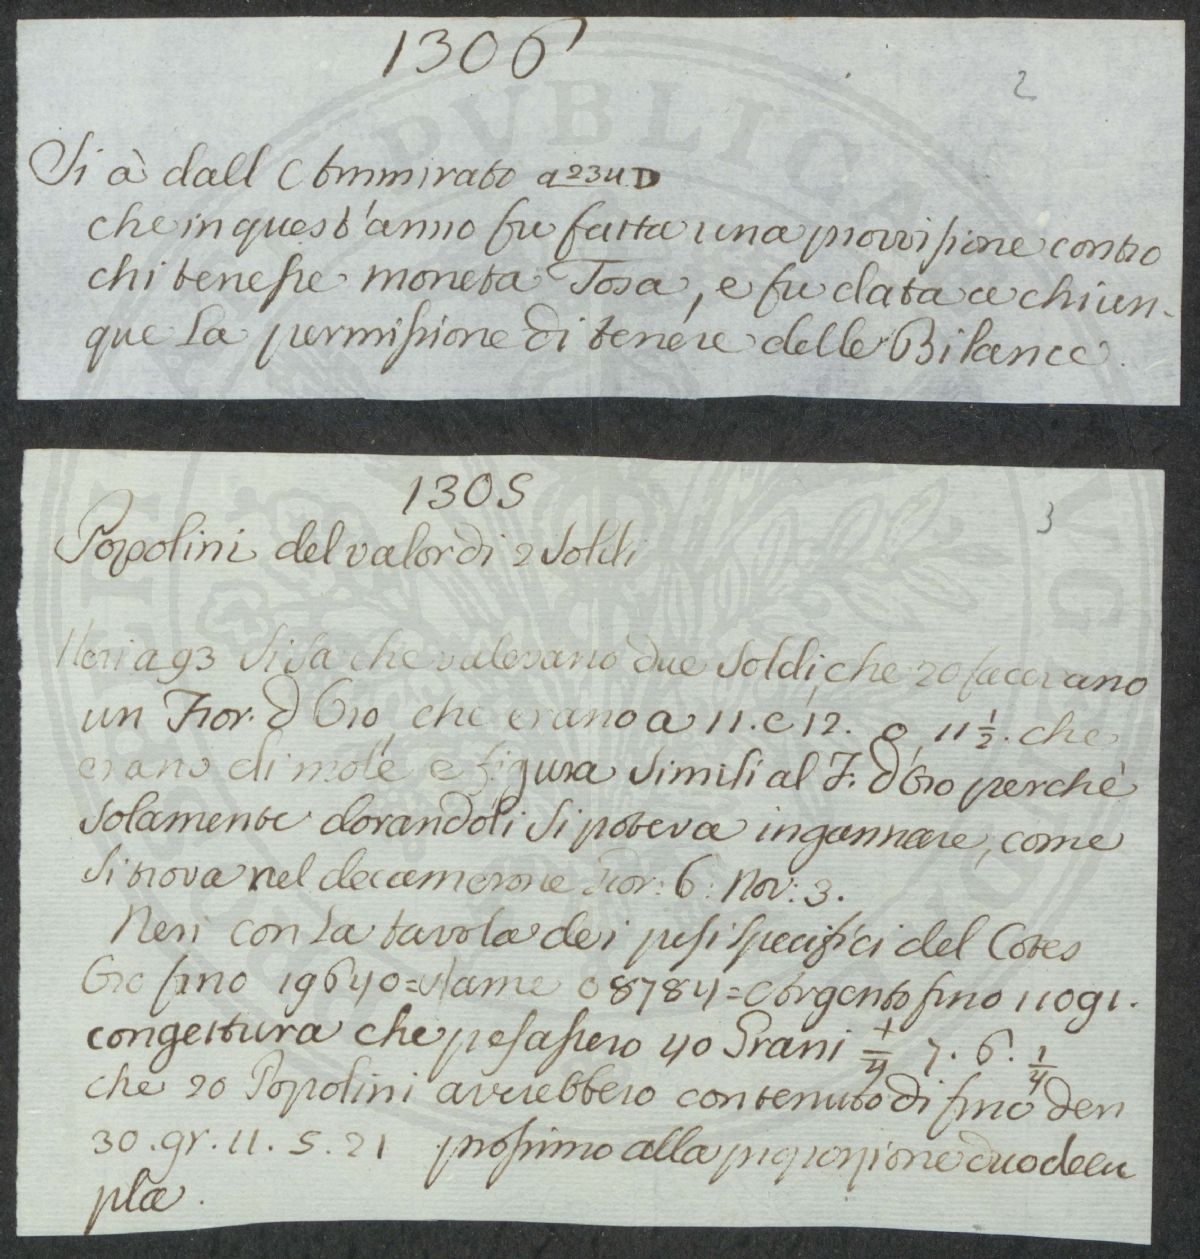 1306
2
Si à dall Ammirato a 234 D
che in quest'anno fu fatta una provvisione contro
chi tenesse moneta Tosa, e fu data a chiun-
que la permissione di tenere delle Bilance.
1305
3
Popolini del valor di 2 Soldi
Neri a 93 Si sa che valevano due Soldi, che 20 facevano
un Fior. d'Oro, che erano a 11. e 12. o 11 1/2. che
erano di mole e figura simili al F. d'Oro perchè
solamente dorandoli si poteva ingannare, come
si trova nel decamerone Gior: 6: Nov: 3.
Neri con la tavola dei pesi specifici del Cotes
Oro fino 19640 = Rame 08784 = Argento fino 11091.
congettura che pesassero 40 Grani 1/4 7. 6. 1/4
che 20 Popolini avrebbero contenuto di fino den
30. gr. 11. 5. 21 prossimo alla proporzione duodecu
pla.